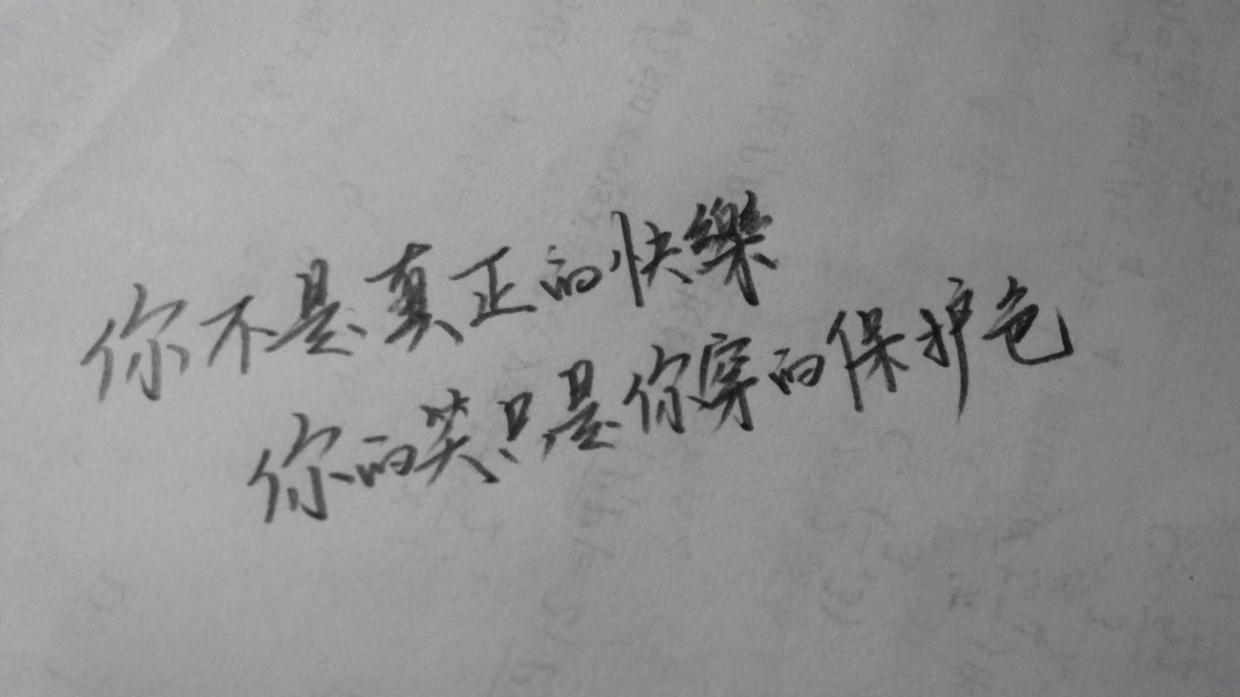 你不是真正的快樂
你的笑只是你穿的保护色